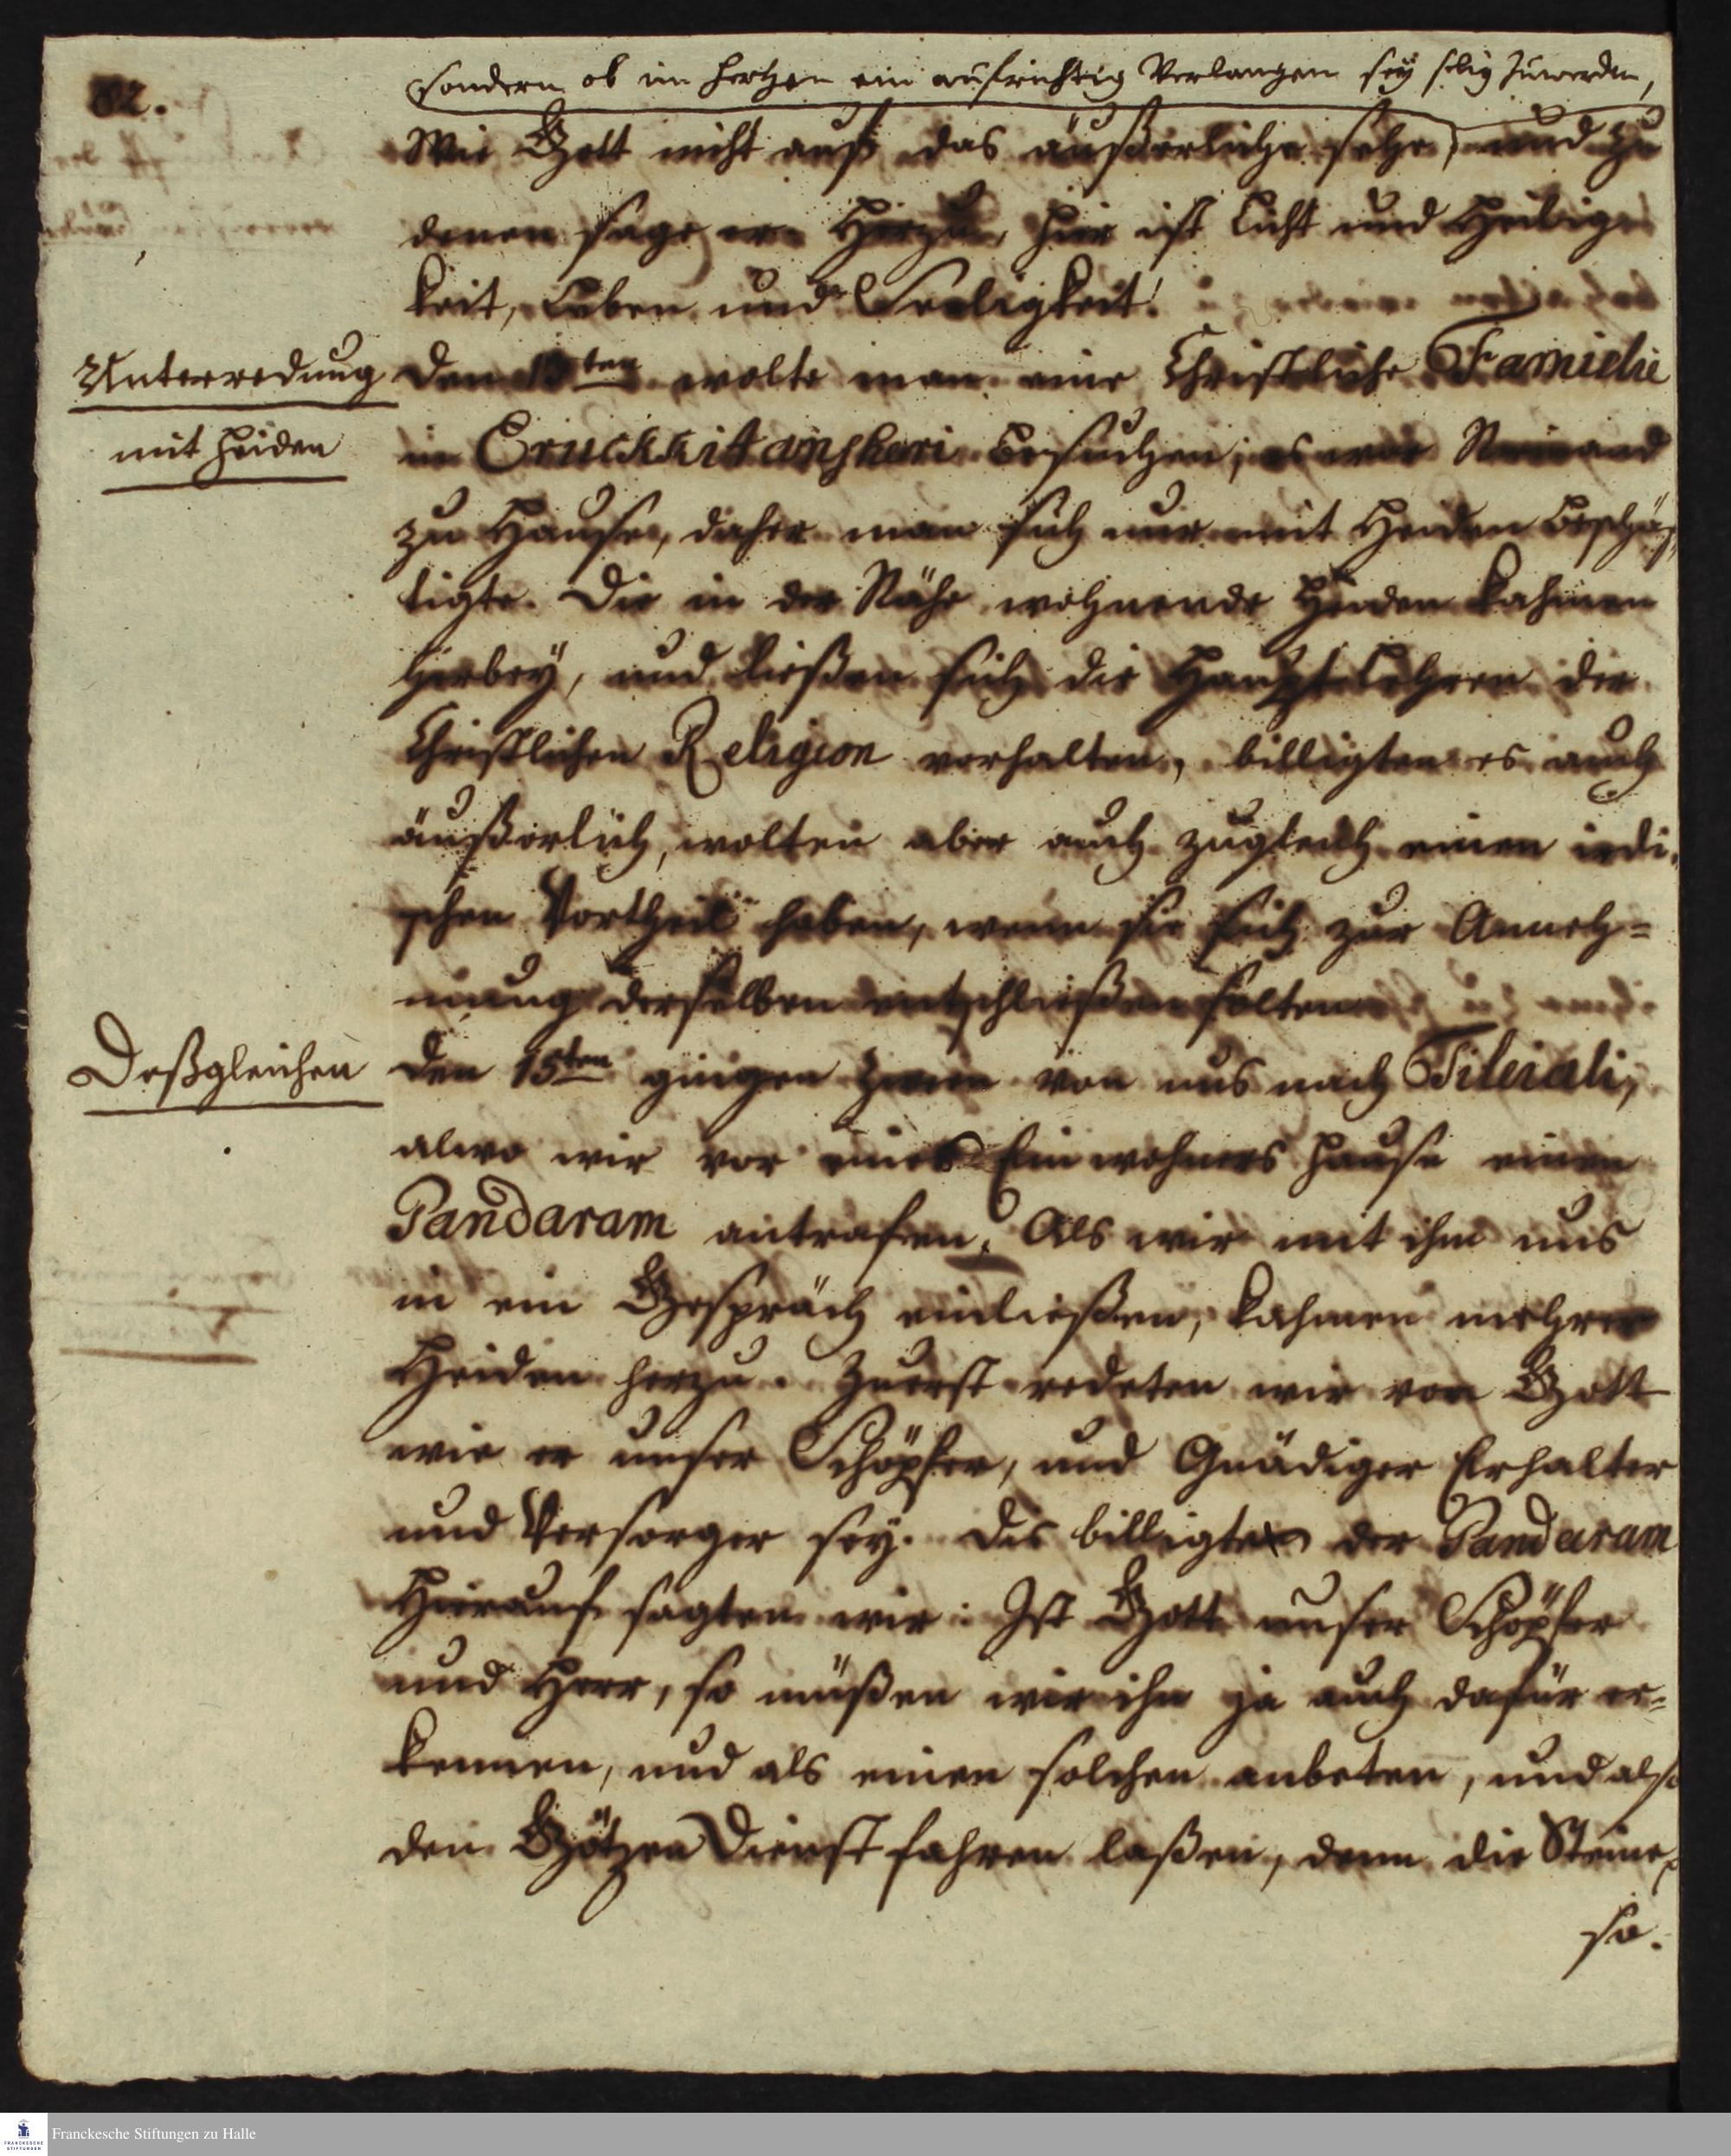 82.
sondern ob im Hertzen ein aufrichtig Verlangen sey selig zuwerden,
Wie Gott nicht auf das äußerliche sehe, und zu
denen sage er: Herzu, hier ist Licht und Heilig-
keit, Leben und Seeligkeit!
Unterredung
mit Heiden
Den 13ten wolte man eine Christliche Familie
in Eruckkitanscheri besuchen; es war Niemand
zu Hause, daher man sich nur mit Heiden beschäf-
tigte. Die in der Nähe wohnende Heiden kahmen
herbey, und ließen sich die Hauptlehren der
Christlichen Religion vorhalten, billigten es auch
äußerlich, wolten aber auch zugleich einen irdi-
schen Vortheil haben, wenn sie sich zur Anneh-
mung derselben entschließen solten.
Deßgleichen
Den 15ten gingen zween von uns nach Tileiali,
alwo wir vor eines Einwohners Hause einen
Pandaram antrafen. Als wir mit ihm uns
in ein Gespräch einließen, kahmen mehrere
Heiden herzu. Zuerst redeten wir von Gott
wie er unser Schöpfer, und Gnädiger Erhalter
und Versorger sey. Dis billigte der Pandaram
Hierauf sagten wir: Ist Gott unser Schöpfer
und Herr, so müßen wir ihn ja auch dafür er-
kennen, und als einen solchen anbeten, und also
den Götzen Dienst fahren laßen, denn die Steine,
so.
Franckesche Stiftungen zu Halle